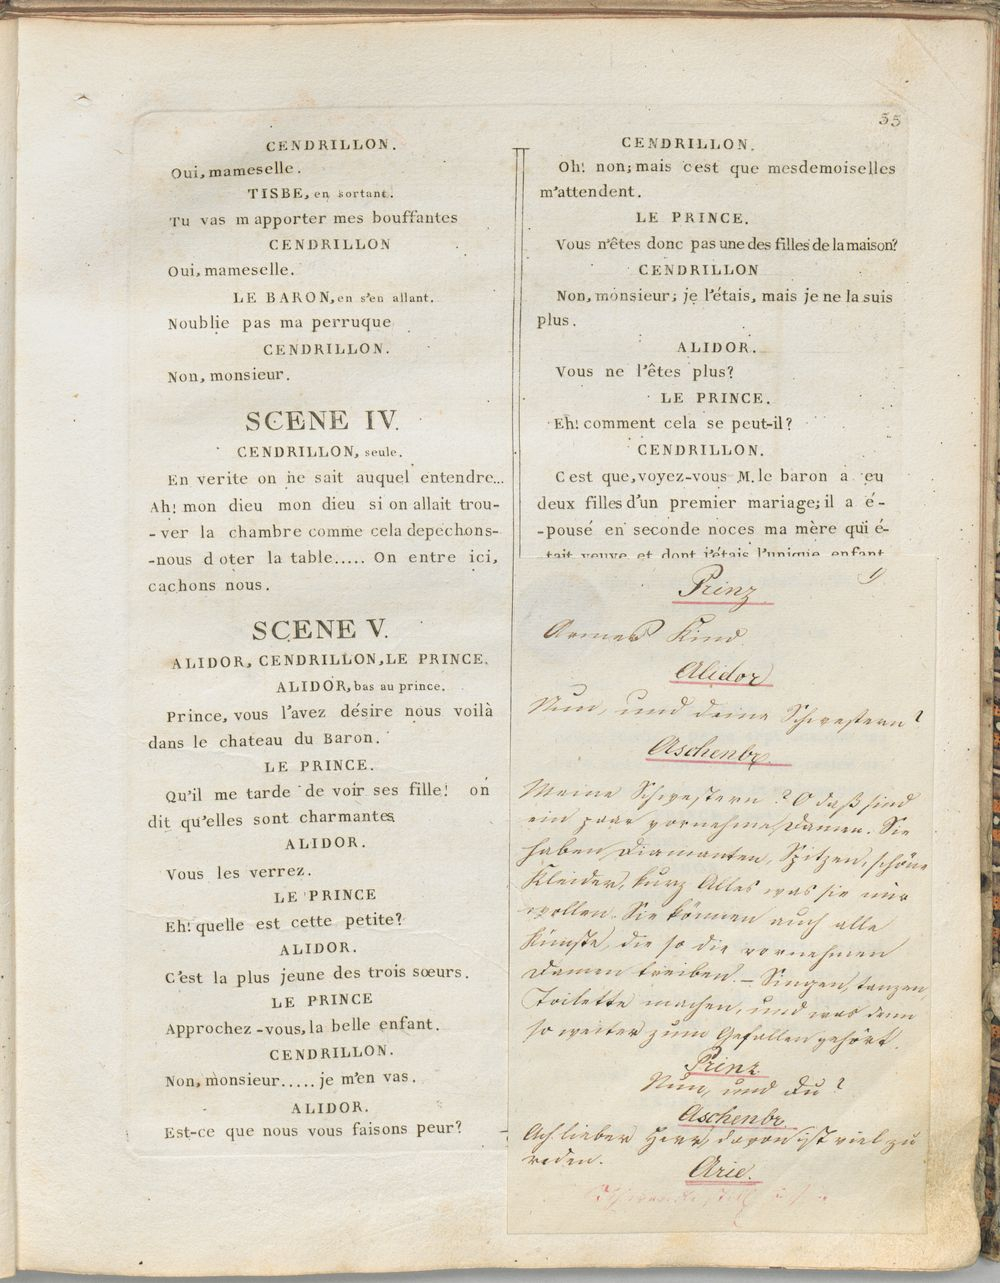 55
CENDRILLON.
Oui, mameselle.
TISBE, en sortant.
Tu vas m apporter mes bouffantes
CENDRILLON
Oui, mameselle.
LE BARON, en s'en allant.
Noublie pas ma perruque
CENDRILLON.
Non, monsieur.
SCENE IV.
CENDRILLON, seule.
En verite on ne sait auquel entendre...
Ah! mon dieu mon dieu si on allait trou-
-ver la chambre comme cela depechons-
-nous d oter la table..... On entre ici,
cachons nous.
SCENE V.
ALIDOR, CENDRILLON, LE PRINCE.
ALIDOR, bas au prince.
Prince, vous l'avez désire nous voilà
dans le chateau du Baron.
LE PRINCE.
Qu'il me tarde de voir ses fille! on
dit qu'elles sont charmantes
ALIDOR.
Vous les verrez.
LE PRINCE
Eh! quelle est cette petite?
ALIDOR.
C'est la plus jeune des trois sœurs.
LE PRINCE
Approchez-vous, la belle enfant.
CENDRILLON.
Non, monsieur..... je m'en vas.
ALIDOR.
Est-ce que nous vous faisons peur?
CENDRILLON.
Oh! non; mais c est que mesdemoiselles
m'attendent.
LE PRINCE.
Vous n'êtes donc pas une des filles de la maison?
CENDRILLON
Non, monsieur; je l'étais, mais je ne la suis
plus.
ALIDOR.
Vous ne l'êtes plus?
LE PRINCE.
Eh! comment cela se peut-il?
CENDRILLON.
C est que, voyez-vous M. le baron a eu
deux filles d'un premier mariage; il a é-
-pousé en seconde noces ma mère qui é-
-tait veuve et dont j'étais l'unique enfant
Prinz
Armes Kind
Alidor
Nun, und deine Schwestern?
Aschenbr.
Meine Schwestern? O daß sind
ein paar vornehme Damen. Sie
haben Diamanten, Spitzen, schöne
Kleider, kurz Alles was sie nur
wollen. Sie können auch alle
Künste, die so die vornehmen
Damen treiben. – Singen, tanzen,
Toilette machen, und was denn
so weiter zum Gefallen gehört.
Prinz
Nun, und du?
Aschenbr
Ach lieber Herr, davon ist viel zu
reden.
Arie.